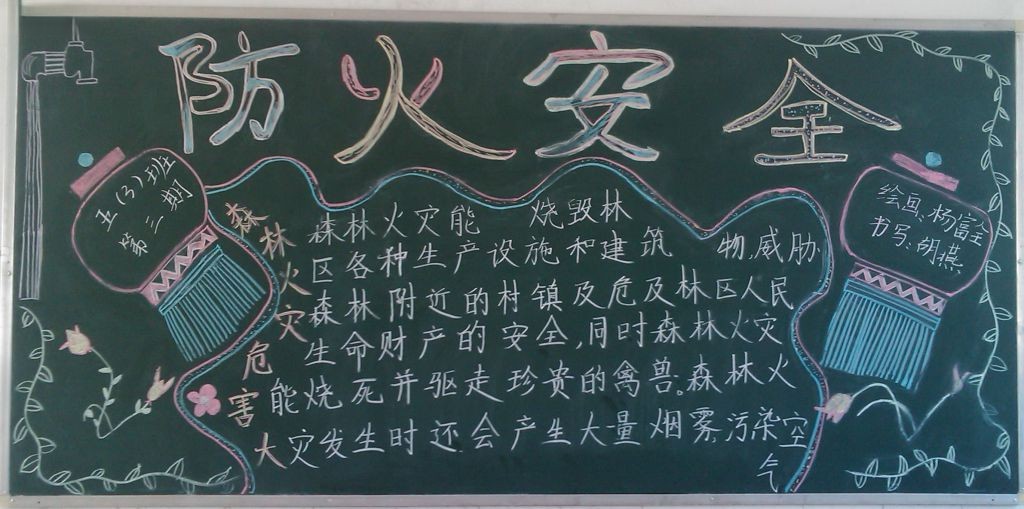 防火安全
五(3)班
第三期
森林火灾危害大
森林火灾能 烧毁林
区各种生产设施和建筑 物,威胁
森林附近的村镇及危及林区人民
生命财产的安全,同时森林火灾
能烧死并驱走珍贵的禽兽。森林火
灾发生时还会产生大量烟雾,污染空
气
绘画、杨富全
书写、胡燕